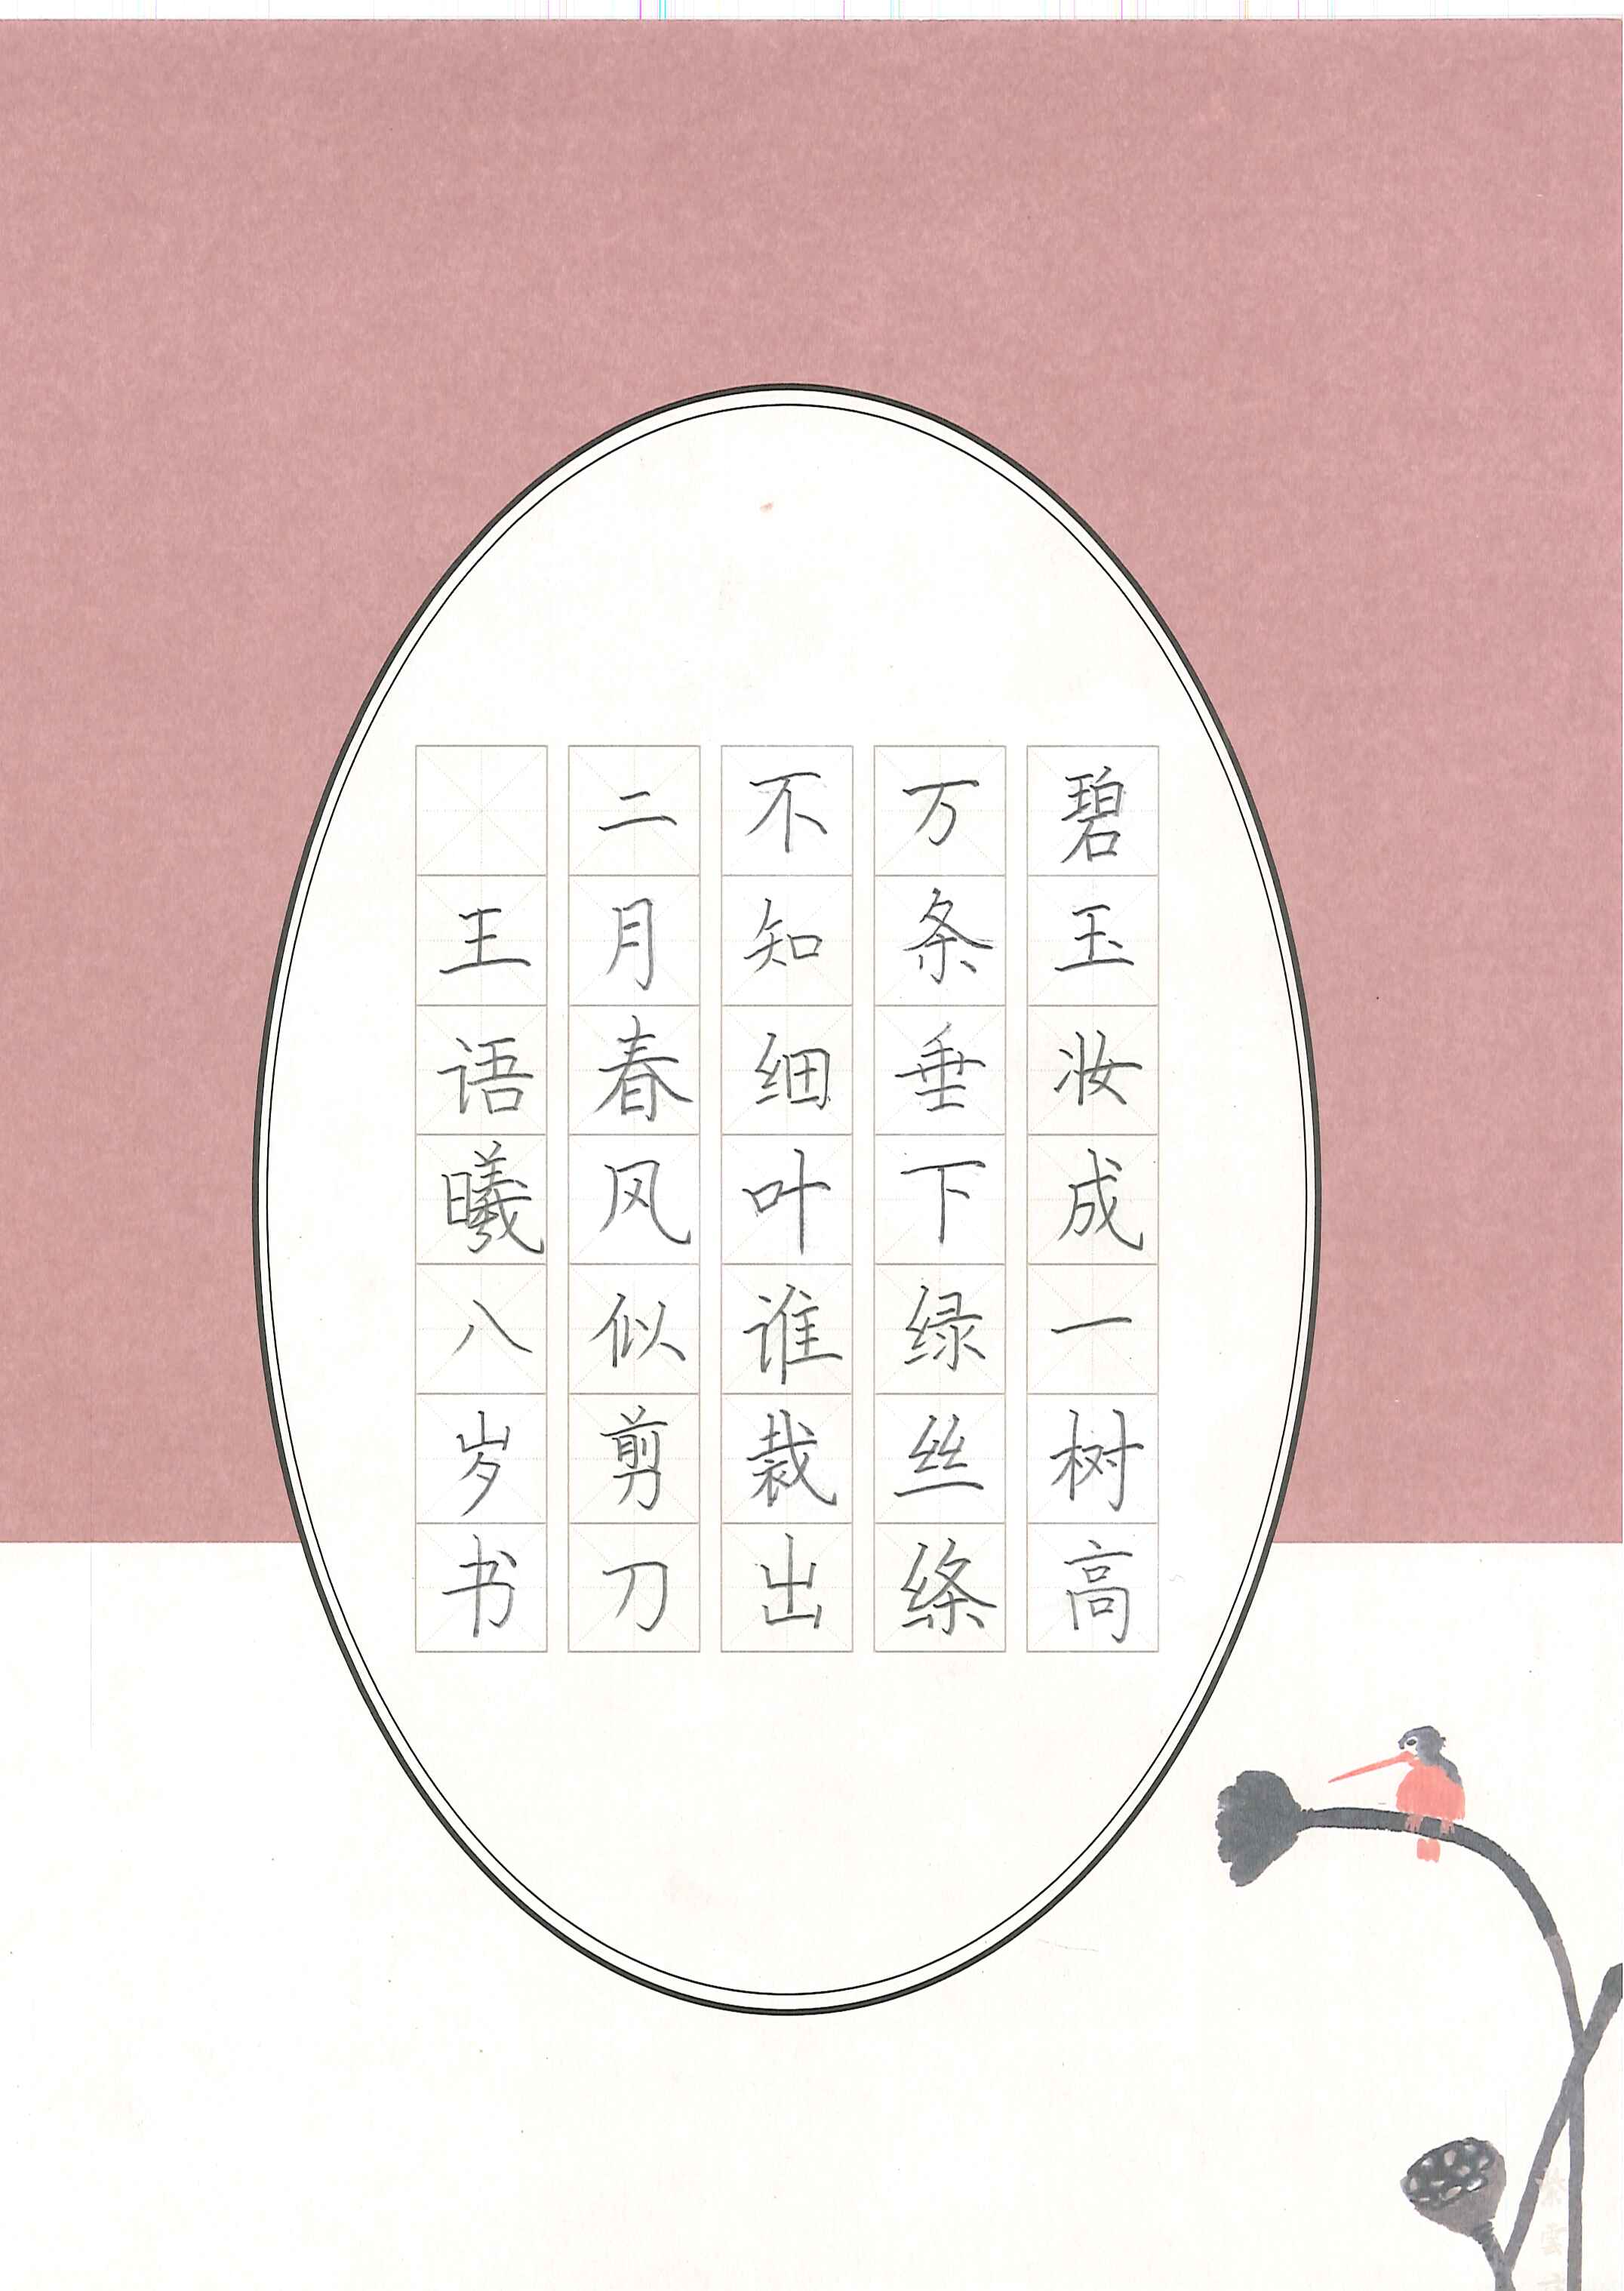 碧玉妆成一树高
万条垂下绿丝绦
不知细叶谁裁出
二月春风似剪刀
王语曦八岁书